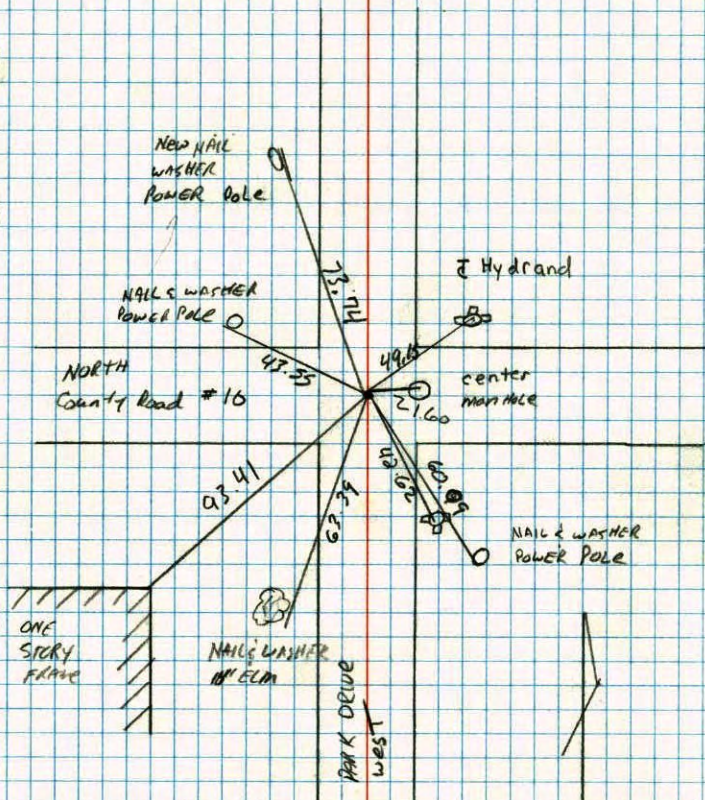 NEW NAIL
WASHER
POWER Pole
73.74
⅊ Hydrand
NAIL & WASHER
POWER Pole
43.55
49.15
NORTH
County Road #16
center
manHole
21.60
93.41
63.39
42.62
60.09
NAIL & WASHER
POWER POLE
ONE
STORY
FRAME
NAIL & WASHER
18" ELM
PARK DRIVE
west